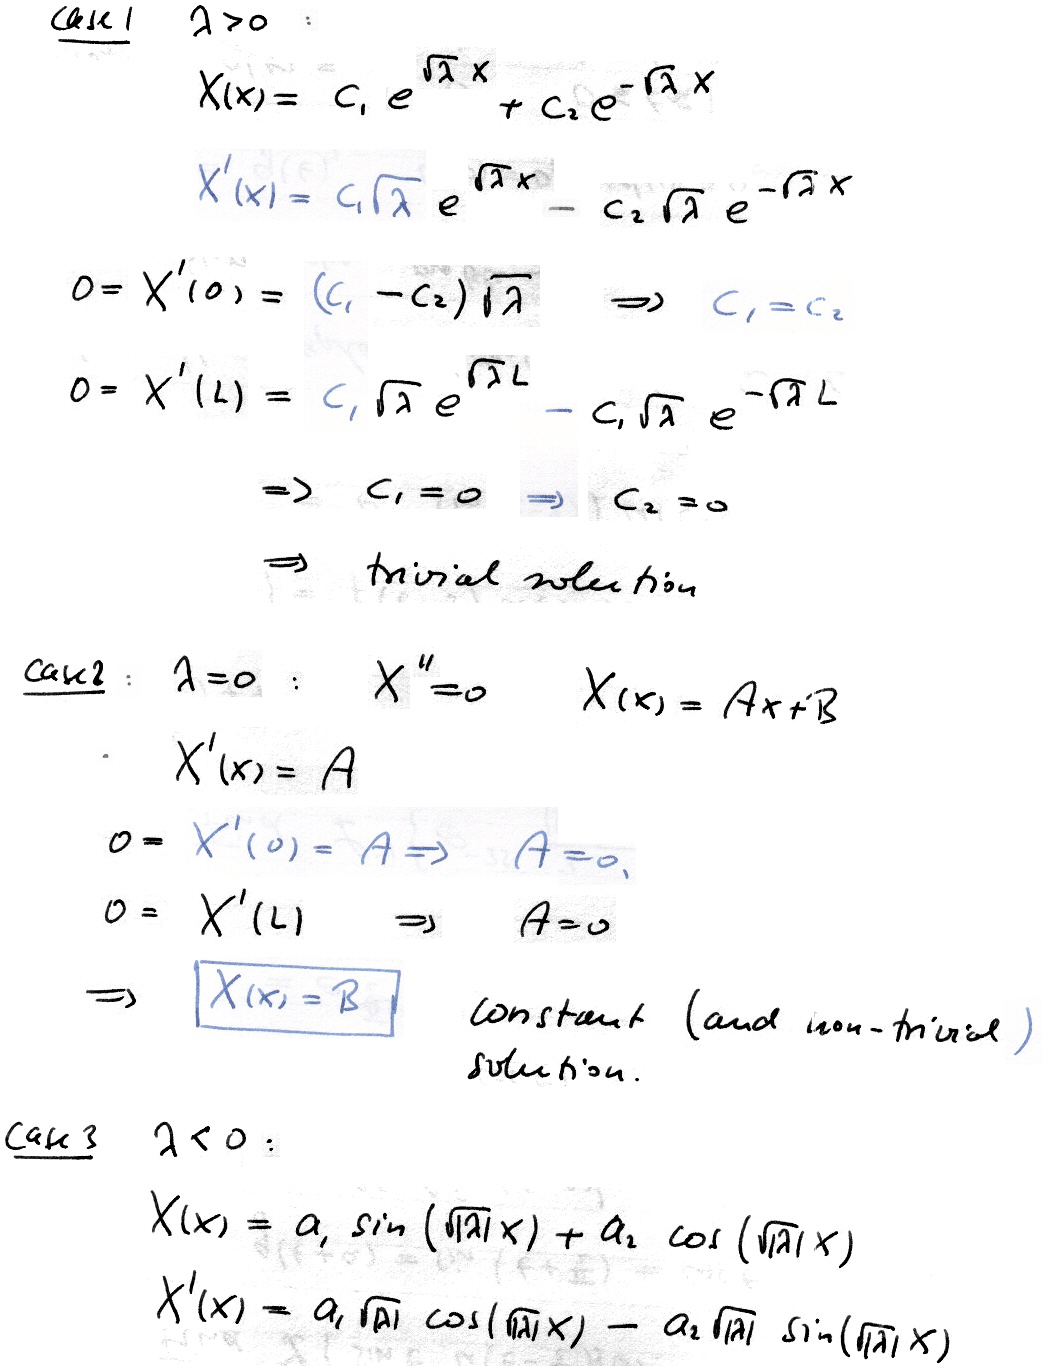 Case 1 λ>0 :
X(x) = c₁ e^{√λ x} + c₂ e^{-√λ x}
X'(x) = c₁√λ e^{√λ x} − c₂ √λ e^{-√λ x}
0 = X'(0) = (c₁ − c₂) √λ ⇒ c₁ = c₂
0 = X'(L) = c₁ √λ e^{√λ L} − c₁ √λ e^{-√λ L}
⇒ c₁ = 0 ⇒ c₂ = 0
⇒ trivial solution
Case 2 : λ=0 : X''=0 X(x) = Ax+B
X'(x) = A
0 = X'(0) = A ⇒ A=0,
0 = X'(L) ⇒ A=0
⇒ X(x) = B constant (and non-trivial)
solution.
Case 3 λ<0 :
X(x) = a₁ sin (√|λ| x) + a₂ cos (√|λ| x)
X'(x) = a₁ √|λ| cos(√|λ| x) − a₂ √|λ| sin(√|λ| x)